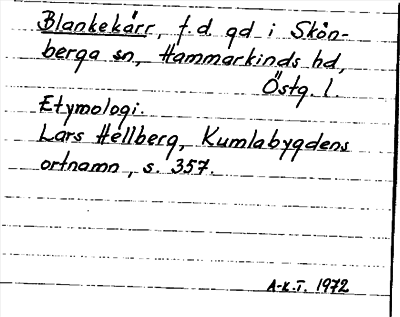 Blankekärr, f.d. gd i Skön-
berga sn, Hammarkinds hd,
Östg. l.
Etymologi.
Lars Hellberg, Kumlabygdens
ortnamn, s. 357.
A-K.T. 1972